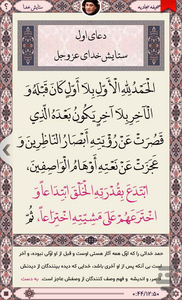 ستایش خدا
صحیفه سجادیه
دعای اول
ستایش خدای عزوجل
اَلْحَمْدُ لِلّٰهِ الْأَوَّلِ بِلَا أَوَّلٍ كَانَ قَبْلَهُ وَ
الْآخِرِ بِلَا آخِرٍ يَكُونُ بَعْدَهُ الَّذِي
قَصُرَتْ عَنْ رُؤْيَتِهِ أَبْصَارُ النَّاظِرِينَ وَ
عَجَزَتْ عَنْ نَعْتِهِ أَوْهَامُ الْوَاصِفِينَ.
ابْتَدَعَ بِقُدْرَتِهِ الْخَلْقَ ابْتِدَاعاً وَ
اخْتَرَعَهُمْ عَلَى مَشِيَّتِهِ اخْتِرَاعاً. ثُمَّ
حمد خدائی را که اوّل همه آثار هستی اوست و قبل از او اوّلی نبوده، و آخر
است بی آنکه پس از او آخری باشد. خدایی که دیده بینندگان از دیدنش
قاصر، و اندیشه و فهم وصف کنندگان از وصفش عاجز است. به دست
۰:۴۴/۱۲:۵۰